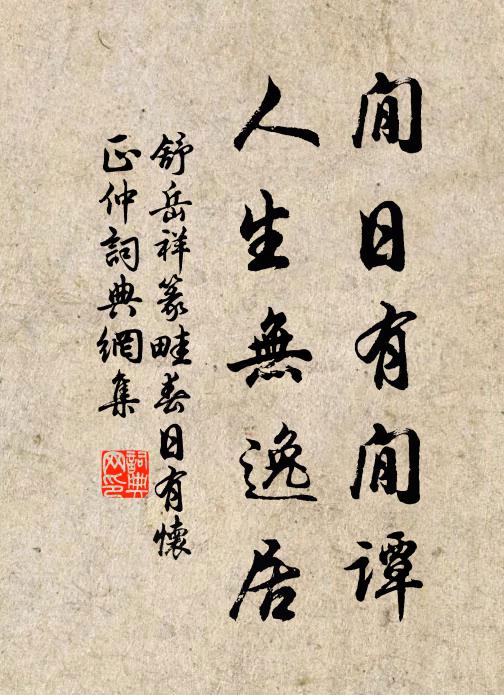 閒日有閒譚
人生無逸居
舒岳祥篆畦春日有懷
正仲詞典網集
詞典
网印